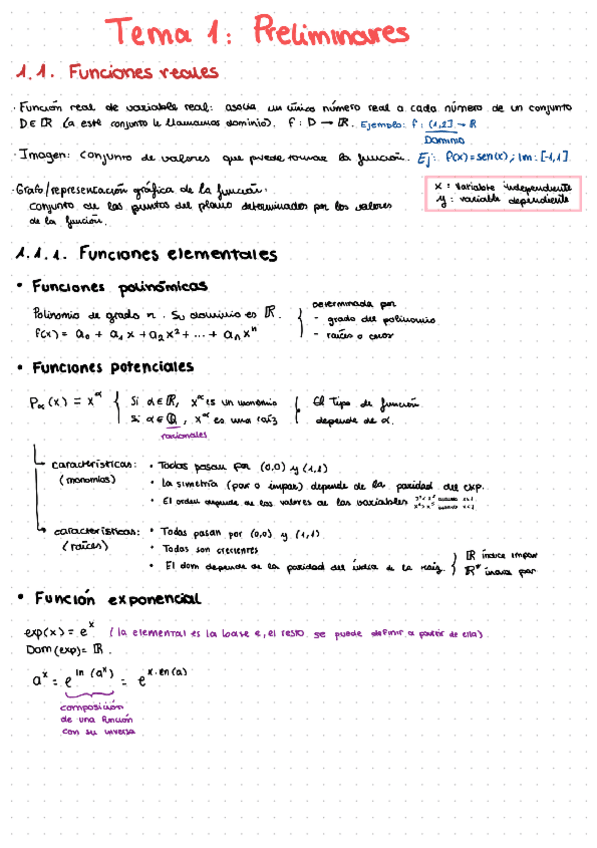 Tema 1: Preliminares
1.1. Funciones reales
· Función real de variable real: asocia un único número real a cada número de un conjunto
D∈ℝ (a este conjunto le llamamos dominio). f: D → ℝ. Ejemplo: f: (1,2] → ℝ
Dominio
· Imagen: Conjunto de valores que puede tomar la función. Ej: f(x)=sen(x); Im: [-1,1]
· Grafo/representación gráfica de la función:
conjunto de los puntos del plano determinados por los valores
de la función.
x: variable independiente
y: variable dependiente
1.1.1. Funciones elementales
• Funciones polinómicas
Polinomio de grado n. Su dominio es ℝ.
f(x) = a₀ + a₁x + a₂x² + ... + aₙxⁿ
Determinada por
- grado del polinomio
- raíces o ceros
• Funciones potenciales
Pα(x) = x^α { Si α∈ℝ, x^α es un monomio
si α∈ℚ, x^α es una raíz
racionales
El Tipo de función
depende de α.
características: • Todas pasan por (0,0) y (1,1)
(monomios) • La simetría (par o impar) depende de la paridad del exp.
• El orden depende de los valores de las variables
características: • Todas pasan por (0,0) y (1,1)
(raíces) • Todas son crecientes
• El dom depende de la paridad del índice de la raíz } ℝ índice impar
ℝ⁺ índice par
• Función exponencial
exp(x) = e^x (la elemental es la base e, el resto se puede definir a partir de ella).
Dom(exp) = ℝ.
a^x = e^ln(a^x) = e^x·ln(a)
composición
de una función
con su inversa